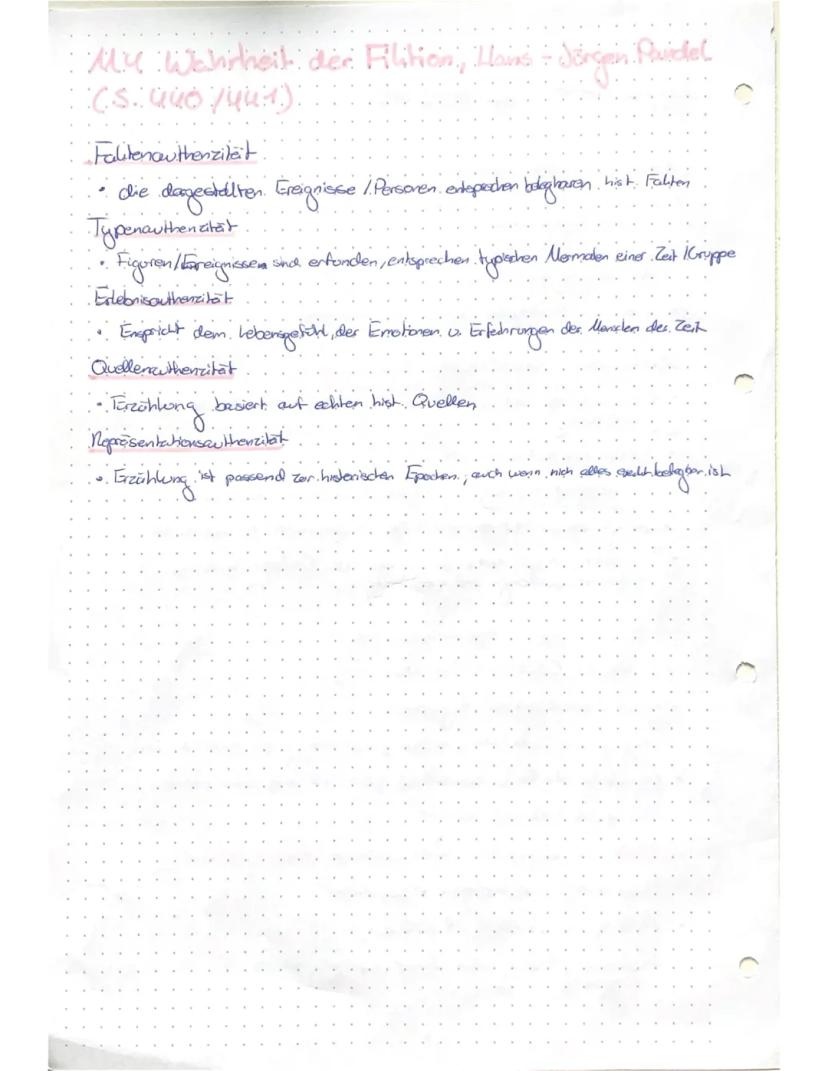 M4 Wahrheit der Fiktion, Hans-Jürgen Pandel
(S. 440/441)
Faktenauthenzität
• die dargestellten Ereignisse / Personen entsprechen belegbaren hist. Fakten
Typenauthenzität
• Figuren/Ereignissen sind erfunden, entsprechen typischen Mermalen einer Zeit / Gruppe
Erlebnisauthenzität
• Enspricht dem Lebensgefühl, der Emotionen u. Erfahrungen der Menschen der Zeit
Quellenauthenzität
• Erzählung basiert auf echten hist. Quellen
Repräsentationsauthenzität
• Erzählung ist passend zur historischen Epochen, auch wenn nich alles belegbar ist